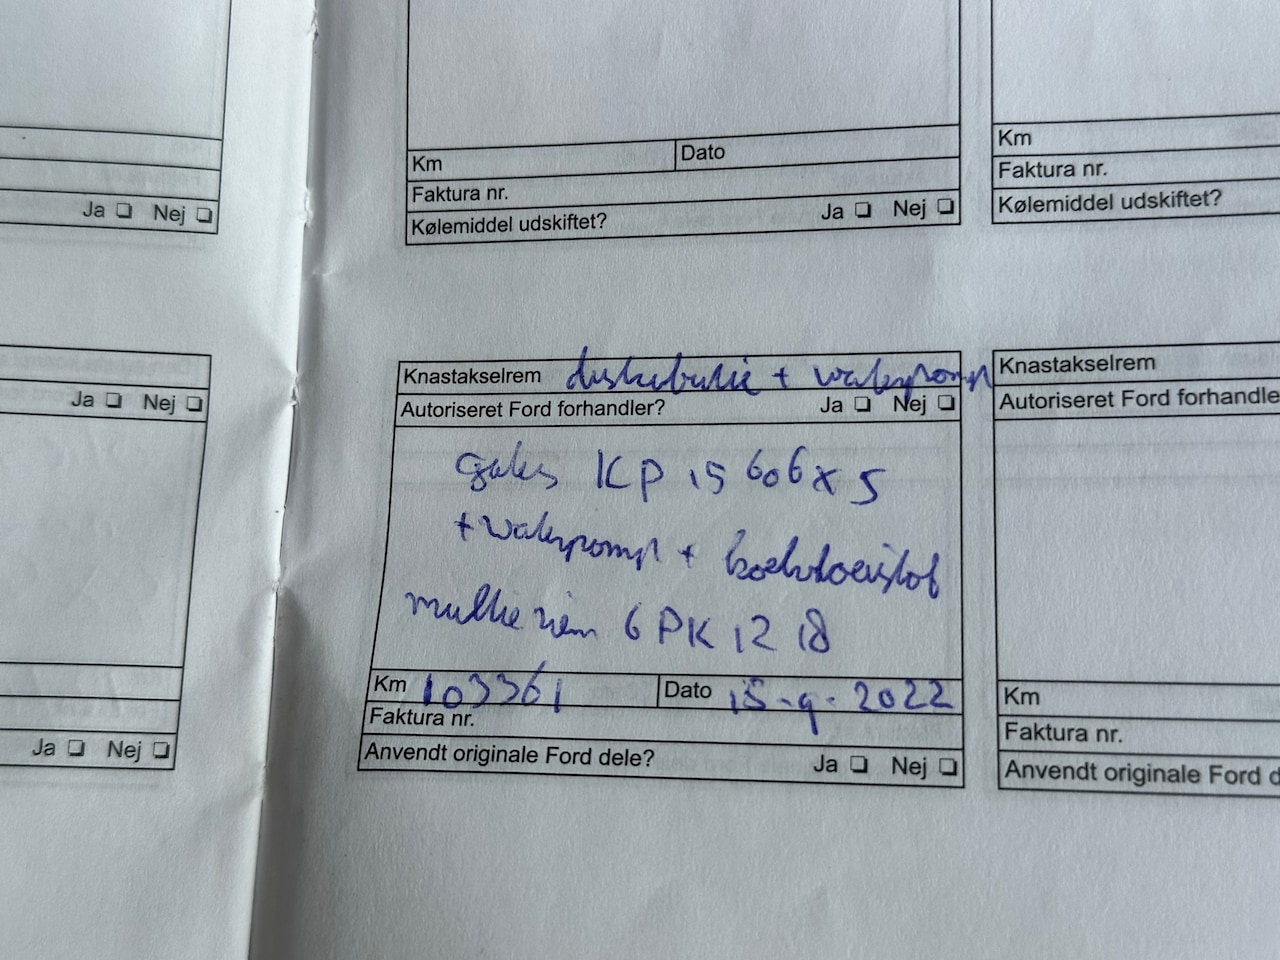 Km
Dato
Faktura nr.
Kølemiddel udskiftet?
Ja
Nej
Km
Faktura nr.
Kølemiddel udskiftet?
Ja
Nej
Ja
Nej
Knastakselrem distributie + waterpomp
Autoriseret Ford forhandler?
Ja
Nej
gates KP 15606XS
+ waterpomp + koelvloeistof
multi riem 6PK 1218
Km 103361
Dato 15-9-2022
Faktura nr.
Anvendt originale Ford dele?
Ja
Nej
Knastakselrem
Autoriseret Ford forhandle
Km
Faktura nr.
Anvendt originale Ford d
Ja
Nej